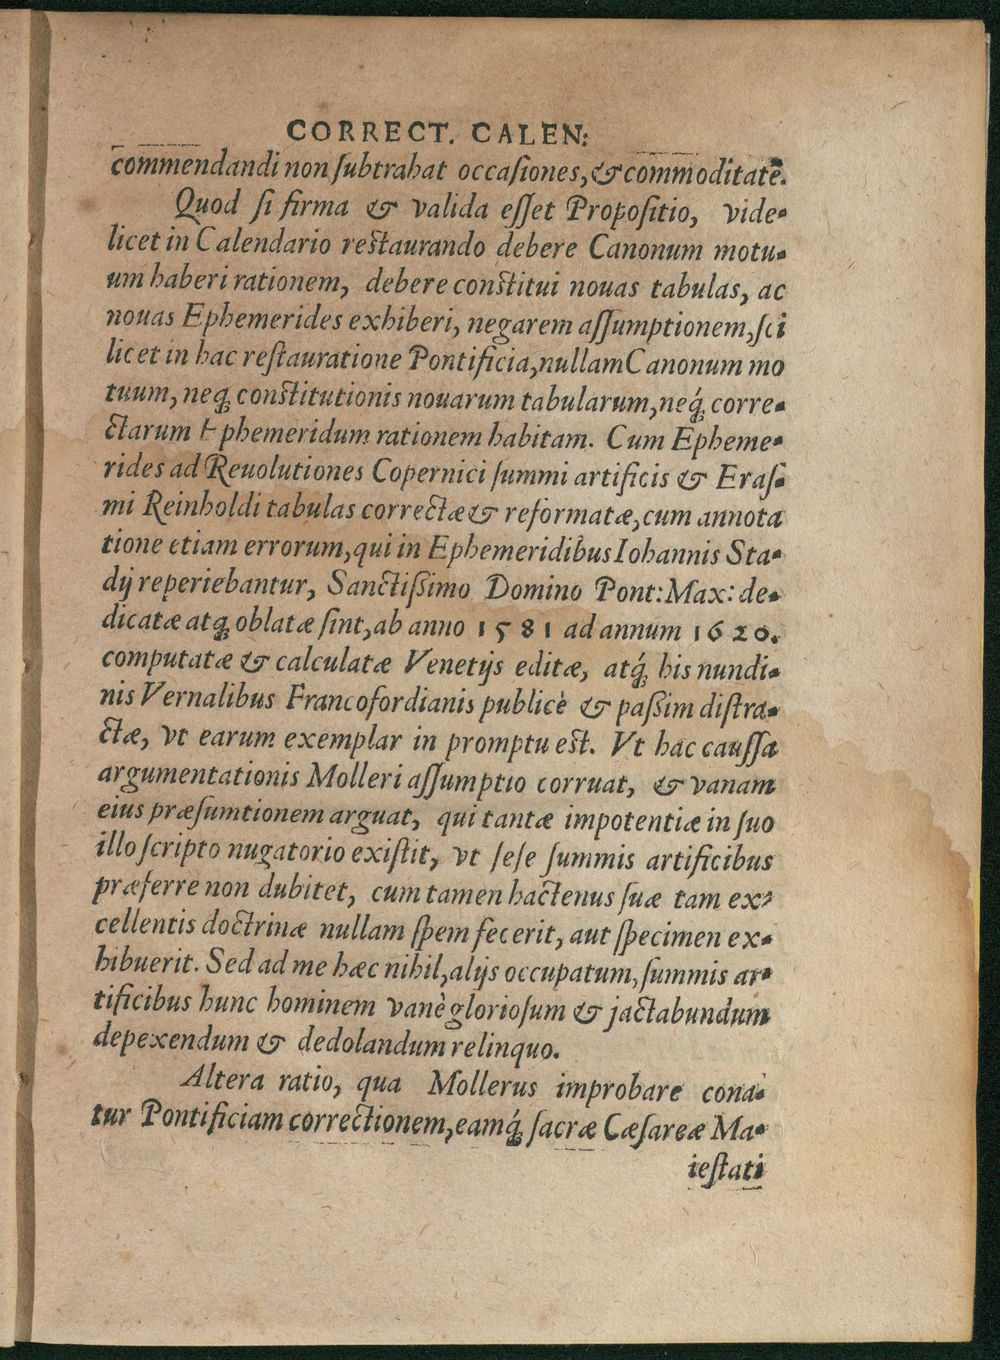 CORRECT. CALEN:
commendandi non ſubtrahat occaſiones, & commoditatē.
Quod ſi firma & valida eſſet Propoſitio, vide-
licet in Calendario reſtaurando debere Canonum motu-
um haberi rationem, debere conſtitui nouas tabulas, ac
nouas Ephemerides exhiberi, negarem aſſumptionem, ſci
licet in hac reſtauratione Pontificia, nullam Canonum mo
tuum, neq; conſtitutionis nouarum tabularum, neq́; corre-
ctarum Ephemeridum rationem habitam. Cum Epheme-
rides ad Reuolutiones Copernici ſummi artificis & Eraſ-
mi Reinholdi tabulas correctæ & reformatæ, cum annota
tione etiam errorum, qui in Ephemeridibus Iohannis Sta-
dij reperiebantur, Sanctiſsimo Domino Pont: Max: de-
dicatæ atq; oblatæ ſint, ab anno 1581 ad annum 1620.
computatæ & calculatæ Venetijs editæ, atq́; his nundi-
nis Vernalibus Francofordianis publicè & paſsim diſtra-
ctæ, vt earum exemplar in promptu eſt. Vt hac cauſſa
argumentationis Molleri aſſumptio corruat, & vanam
eius præſumtionem arguat, qui tantæ impotentiæ in ſuo
illo ſcripto nugatorio exiſtit, vt ſeſe ſummis artificibus
præferre non dubitet, cum tamen hactenus ſuæ tam ex-
cellentis doctrinæ nullam ſpem fecerit, aut ſpecimen ex-
hibuerit. Sed ad me hæc nihil, alijs occupatum, ſummis ar-
tificibus hunc hominem vanè glorioſum & jactabundum
depexendum & dedolandum relinquo.
Altera ratio, qua Mollerus improbare cona-
tur Pontificiam correctionem, eamq́; ſacræ Cæſareæ Ma-
ieſtati